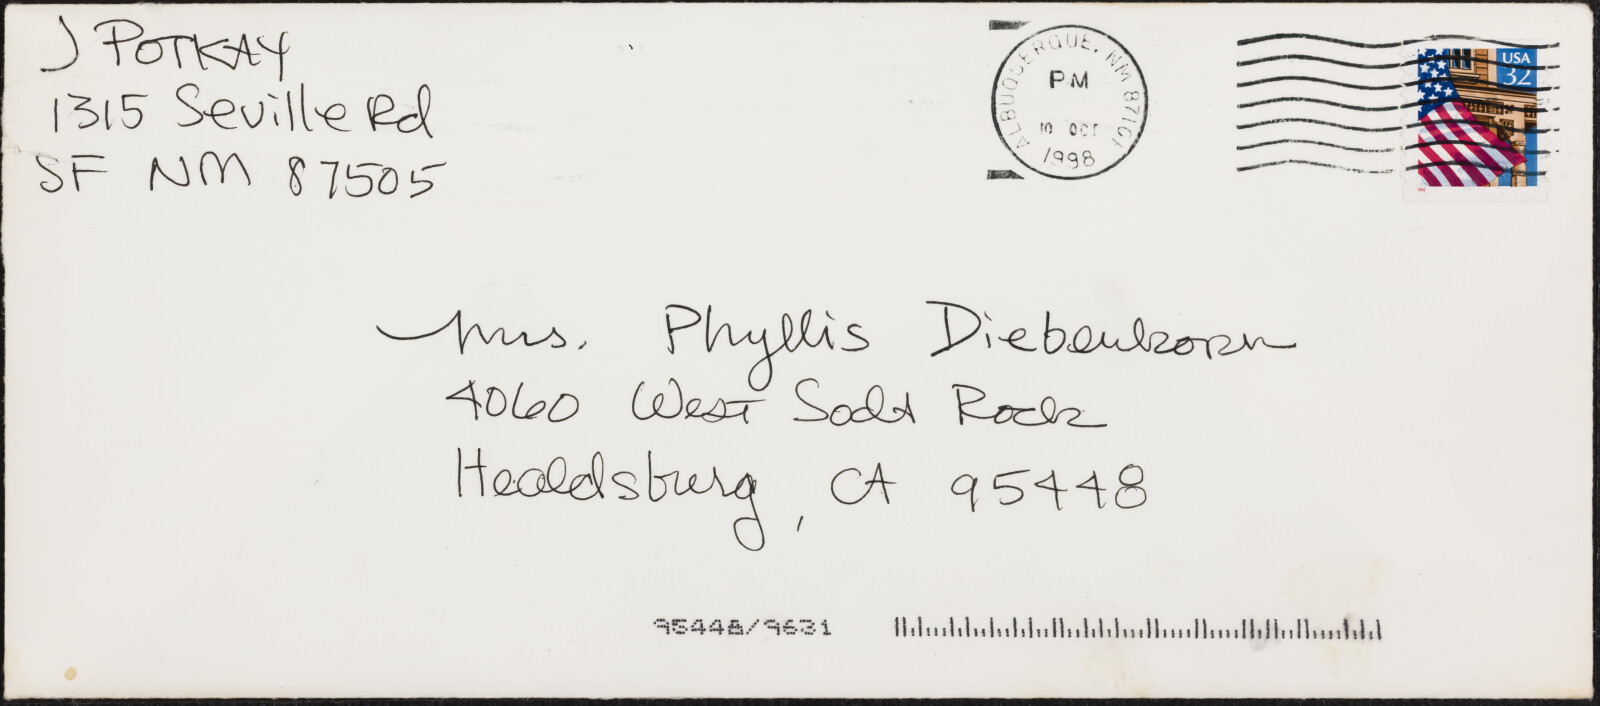 J POTKAY
1315 Seville Rd
SF NM 87505
ALBUQUERQUE, NM 87101
PM
10 OCT
1998
USA
32
Mrs. Phyllis Diebenkorn
4060 West Soda Rock
Healdsburg, CA 95448
95448/9631